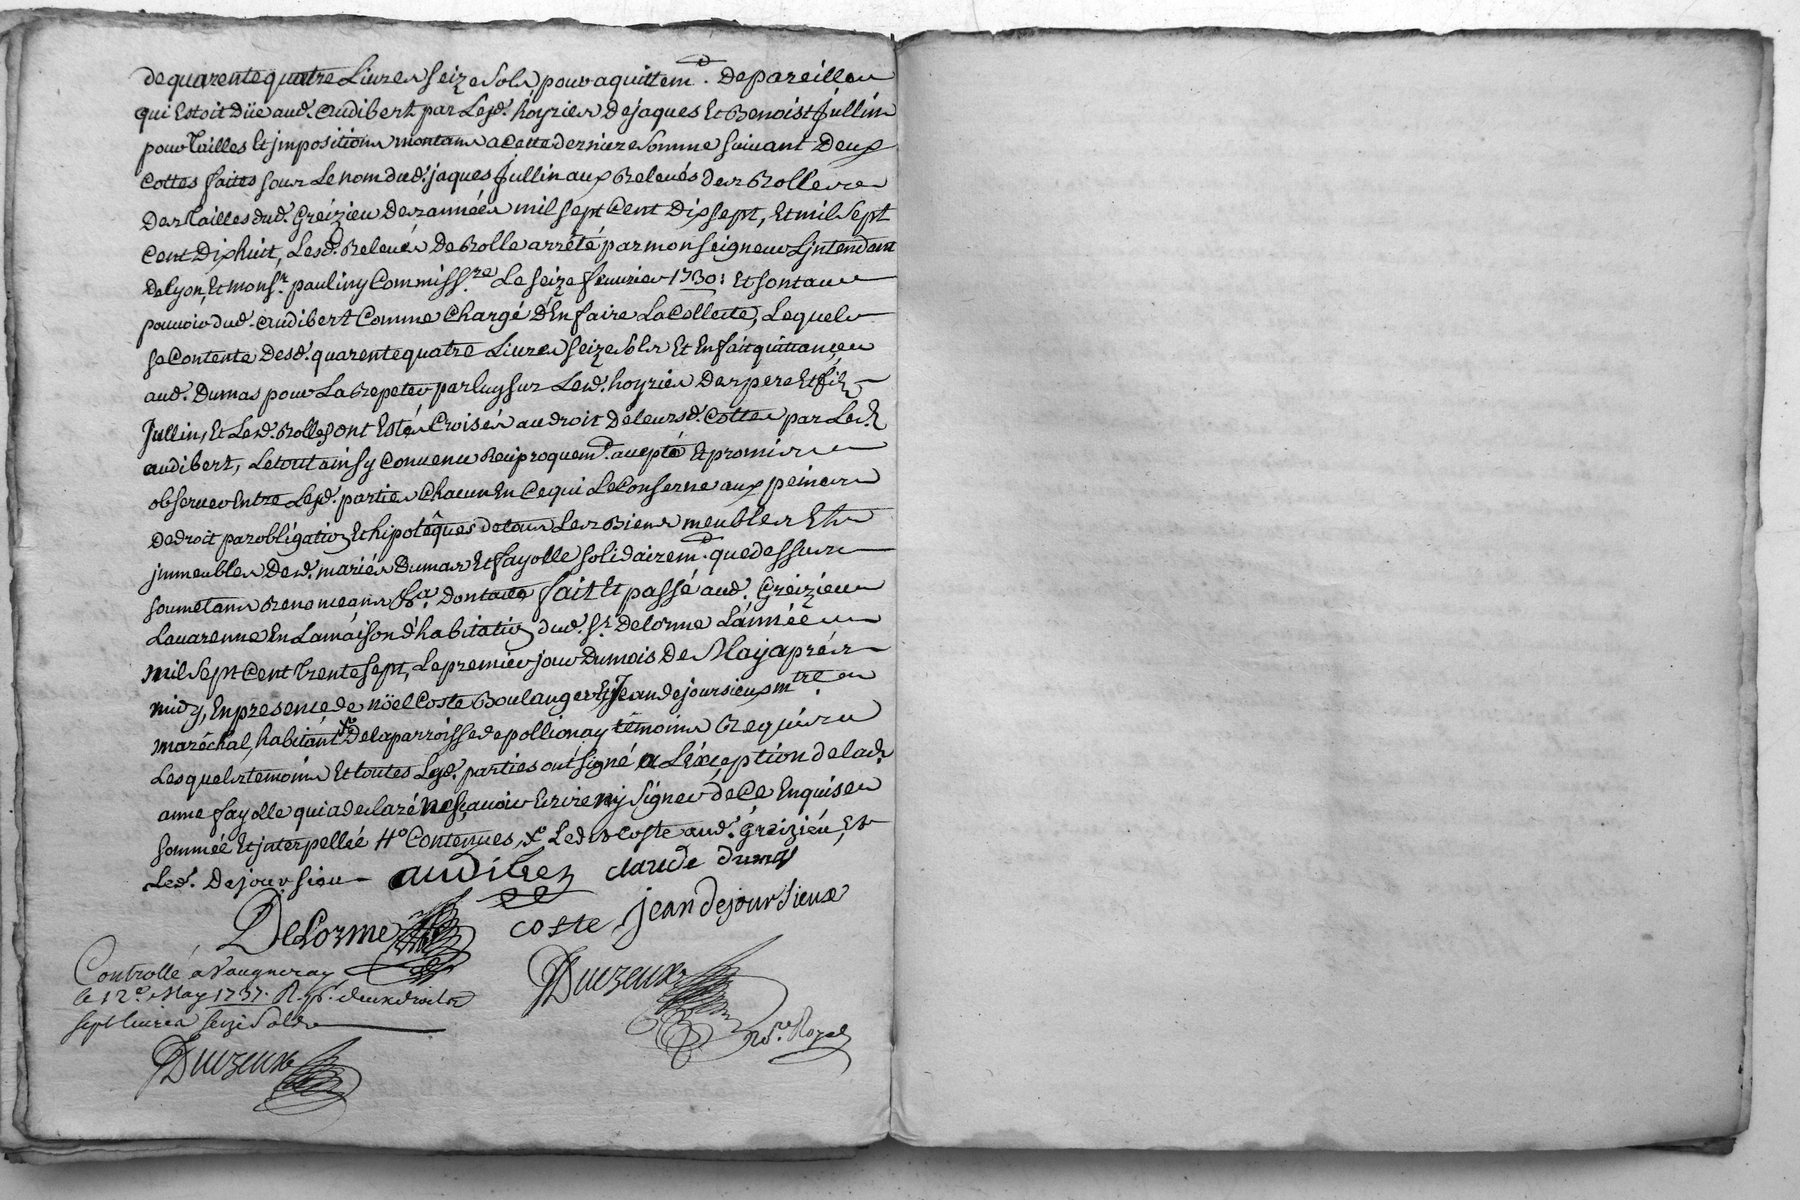 de quarente quatre Livres seize sols, pour aquittem.t de pareille
qui Estoit düe aud. Audibert par Lesd. hoyries de jaques Et Benoist Jullin
pour Tailles Et jmpositions montans a cette derniere somme suivant Deux
Cottes faites sous Le nom dud. jaques Jullin aux Relevés des Rolles
Des Tailles dud. Greizieu des années mil sept Cent Dix sept, Et mil sept
Cent Dix huit, Lesd. Relevés de Rolle arrété par monseigneur L'jntendant
de Lyon, Et mons.r pauliny Commiss.re Le seize fevrier 1730: Et sont au
pouvoir dud. Audibert Comme Chargé d'En faire La Collecte, Lequel
se Contente Desd. quarente quatre Livres seize sols Et En fait quittance
aud. Dumas pour La Repeter par luy sur Lesd. hoyries des pere Et fils
Jullin, Et Lesd. Rolles ont Estés Croisés au droit de leursd. Cottes par Led.
audibert, Le tout ainsy Convenu Reciproquem.t accepté Et promis
observer Entre Lesd. parties Chacun En Ce qui Le Conserne aux peines
de droit par obligation Et hipotêques de tous Les Biens meubles Et
jmmeubles Desd. mariés Dumas Et fayolle solidairem.t que dessus
soumetans Renonceans &a. Dont acte fait Et passé aud. Greizieu
Lavarenne En La maison d'habitation dud. Sr. Delorme L'année
mil sept Cent trente sept, Le premier jour Du mois De May aprés
midy, En presence de nöel Coste Boulanger Et Jean dejoursieux m.tre
maréchal, habitant de la parroisse de pollionay témoins Requis
Lesquels temoins Et toutes Lesd. parties ont signé a L'éxception de lad.
anne fayolle qui a declaré ne sçavoir Ecrire ny signer de Ce Enquise
sommée Et jnterpellée Contenues, Led. Coste aud. Greizieu, Et
Led. Dejoursieu
audiber claude dumas
DeLorme coste jean dejoursieux
Controllé a Vaugneray
le 12e. May 1737. R. deux droits
sept livres seize sols
Duezeuxe
Duezeuxe
No.re Royal